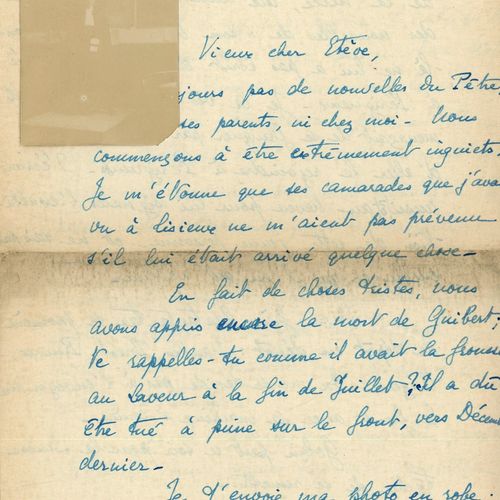 Vieux cher Estève,
jours pas de nouvelles du Pêtre,
ses parents, ni chez moi - Nous
commençons à être extrêmement inquiets.
Je m'étonne que ses camarades que j'avai
vu à Lisieux ne m'aient pas prévenu
s'il lui était arrivé quelque chose -
En fait de choses tristes, nous
avons appris encore la mort de Guibert;
Te rappelles-tu comme il avait la frousse
au Laveur à la fin de Juillet? Il a dû
être tué à peine sur le front, vers Décem
dernier -
Je t'envoie ma photo en robe